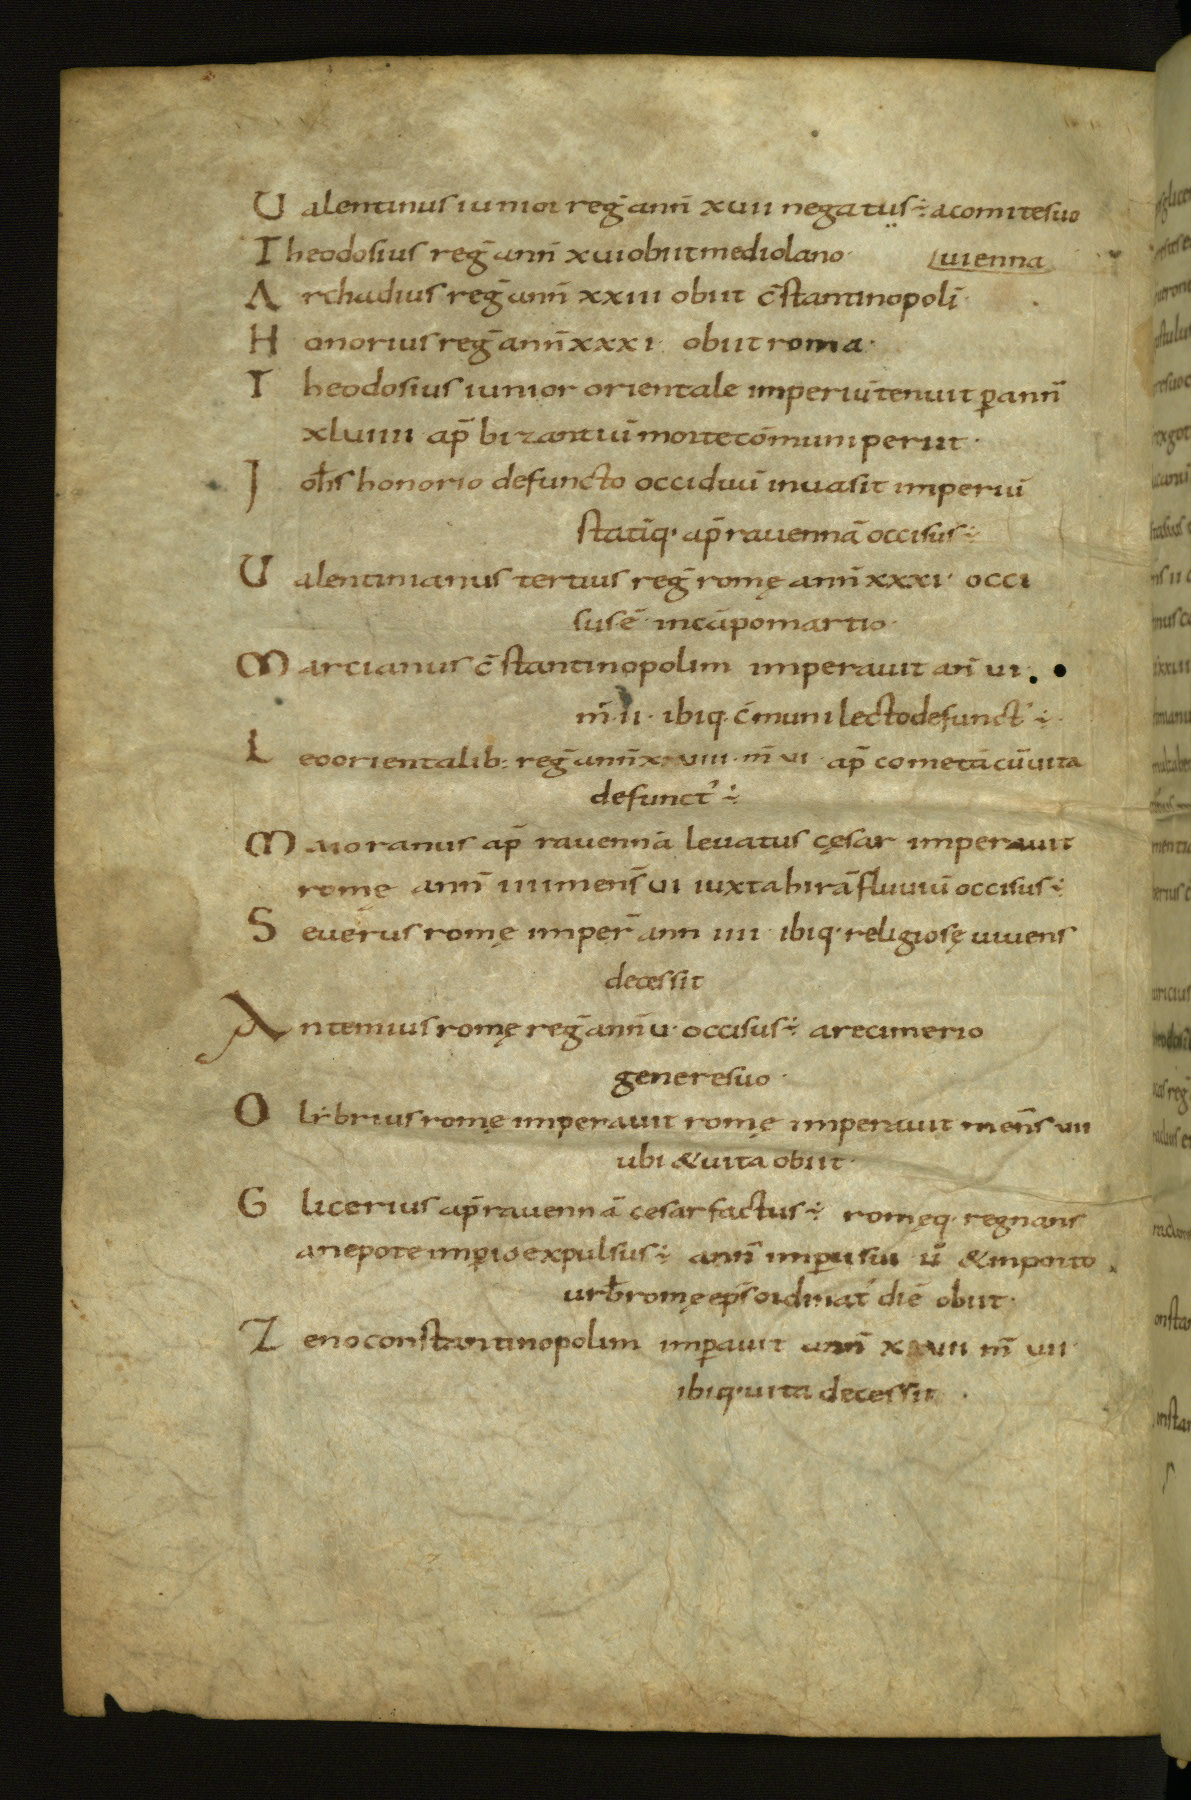 Ualentinus iunior reg̅ ann̅ xuii negatus ÷ a comite suo
Theodosius reg̅ ann̅ xui obiit mediolano · uienna
Archadius reg̅ ann̅ xxiii obiit c̅stantinopoli ·
Honorius reg̅ ann̅ xxxi · obiit roma ·
Theodosius iunior orientale imperiu̅ tenuit p̲ ann̅
xluiiii ap̅ bizantiu̅ morte co̅muni periit ·
Ioh̅s honorio defuncto occiduu̅ inuasit imperiu̅
stati̅q · ap̅ rauenna̅ occisus ÷
Ualentinianus tertius reg̅ romę ann̅ xxxi · occi
sus e̅ in ca̅po martio ·
Marcianus c̅stantinopolim imperauit an̅ ui ·
m̅ · ii · ibiq · c̅muni lecto defunct᾿ ÷
Leo orientalib: reg̅ ann̅ m̅ ui · ap̅ cometa̅ cu̅ uita
defunct᾿ ÷
Maioranus ap̅ rauenna̅ leuatus cęsar imperauit
romę ann̅ iii mens̅ ui iuxta hira̅ fluuiu̅ occisus ÷
Seuerus romę imper̅ ann iiii · ibiq · religiosę uiuens
decessit
Antemius romę reg̅ ann̅ u · occisus ÷ a recimerio
genere suo ·
Olybrius romę imperauit romę imperauit mens̅ uii
ubi & uita obiit ·
Glicerius ap̅ rauenna̅ cesar factus ÷ romęq · regnans
a nepote imp̲io expulsus ÷ ann̅ imp̲ii sui u̅ & in porto
urb̅ romę ep̅s ordinat᾿ die̅ obiit ·
Zeno constantinopolim imp̲auit ann̅ m̅ uii ·
ibiq · uita decessit ·